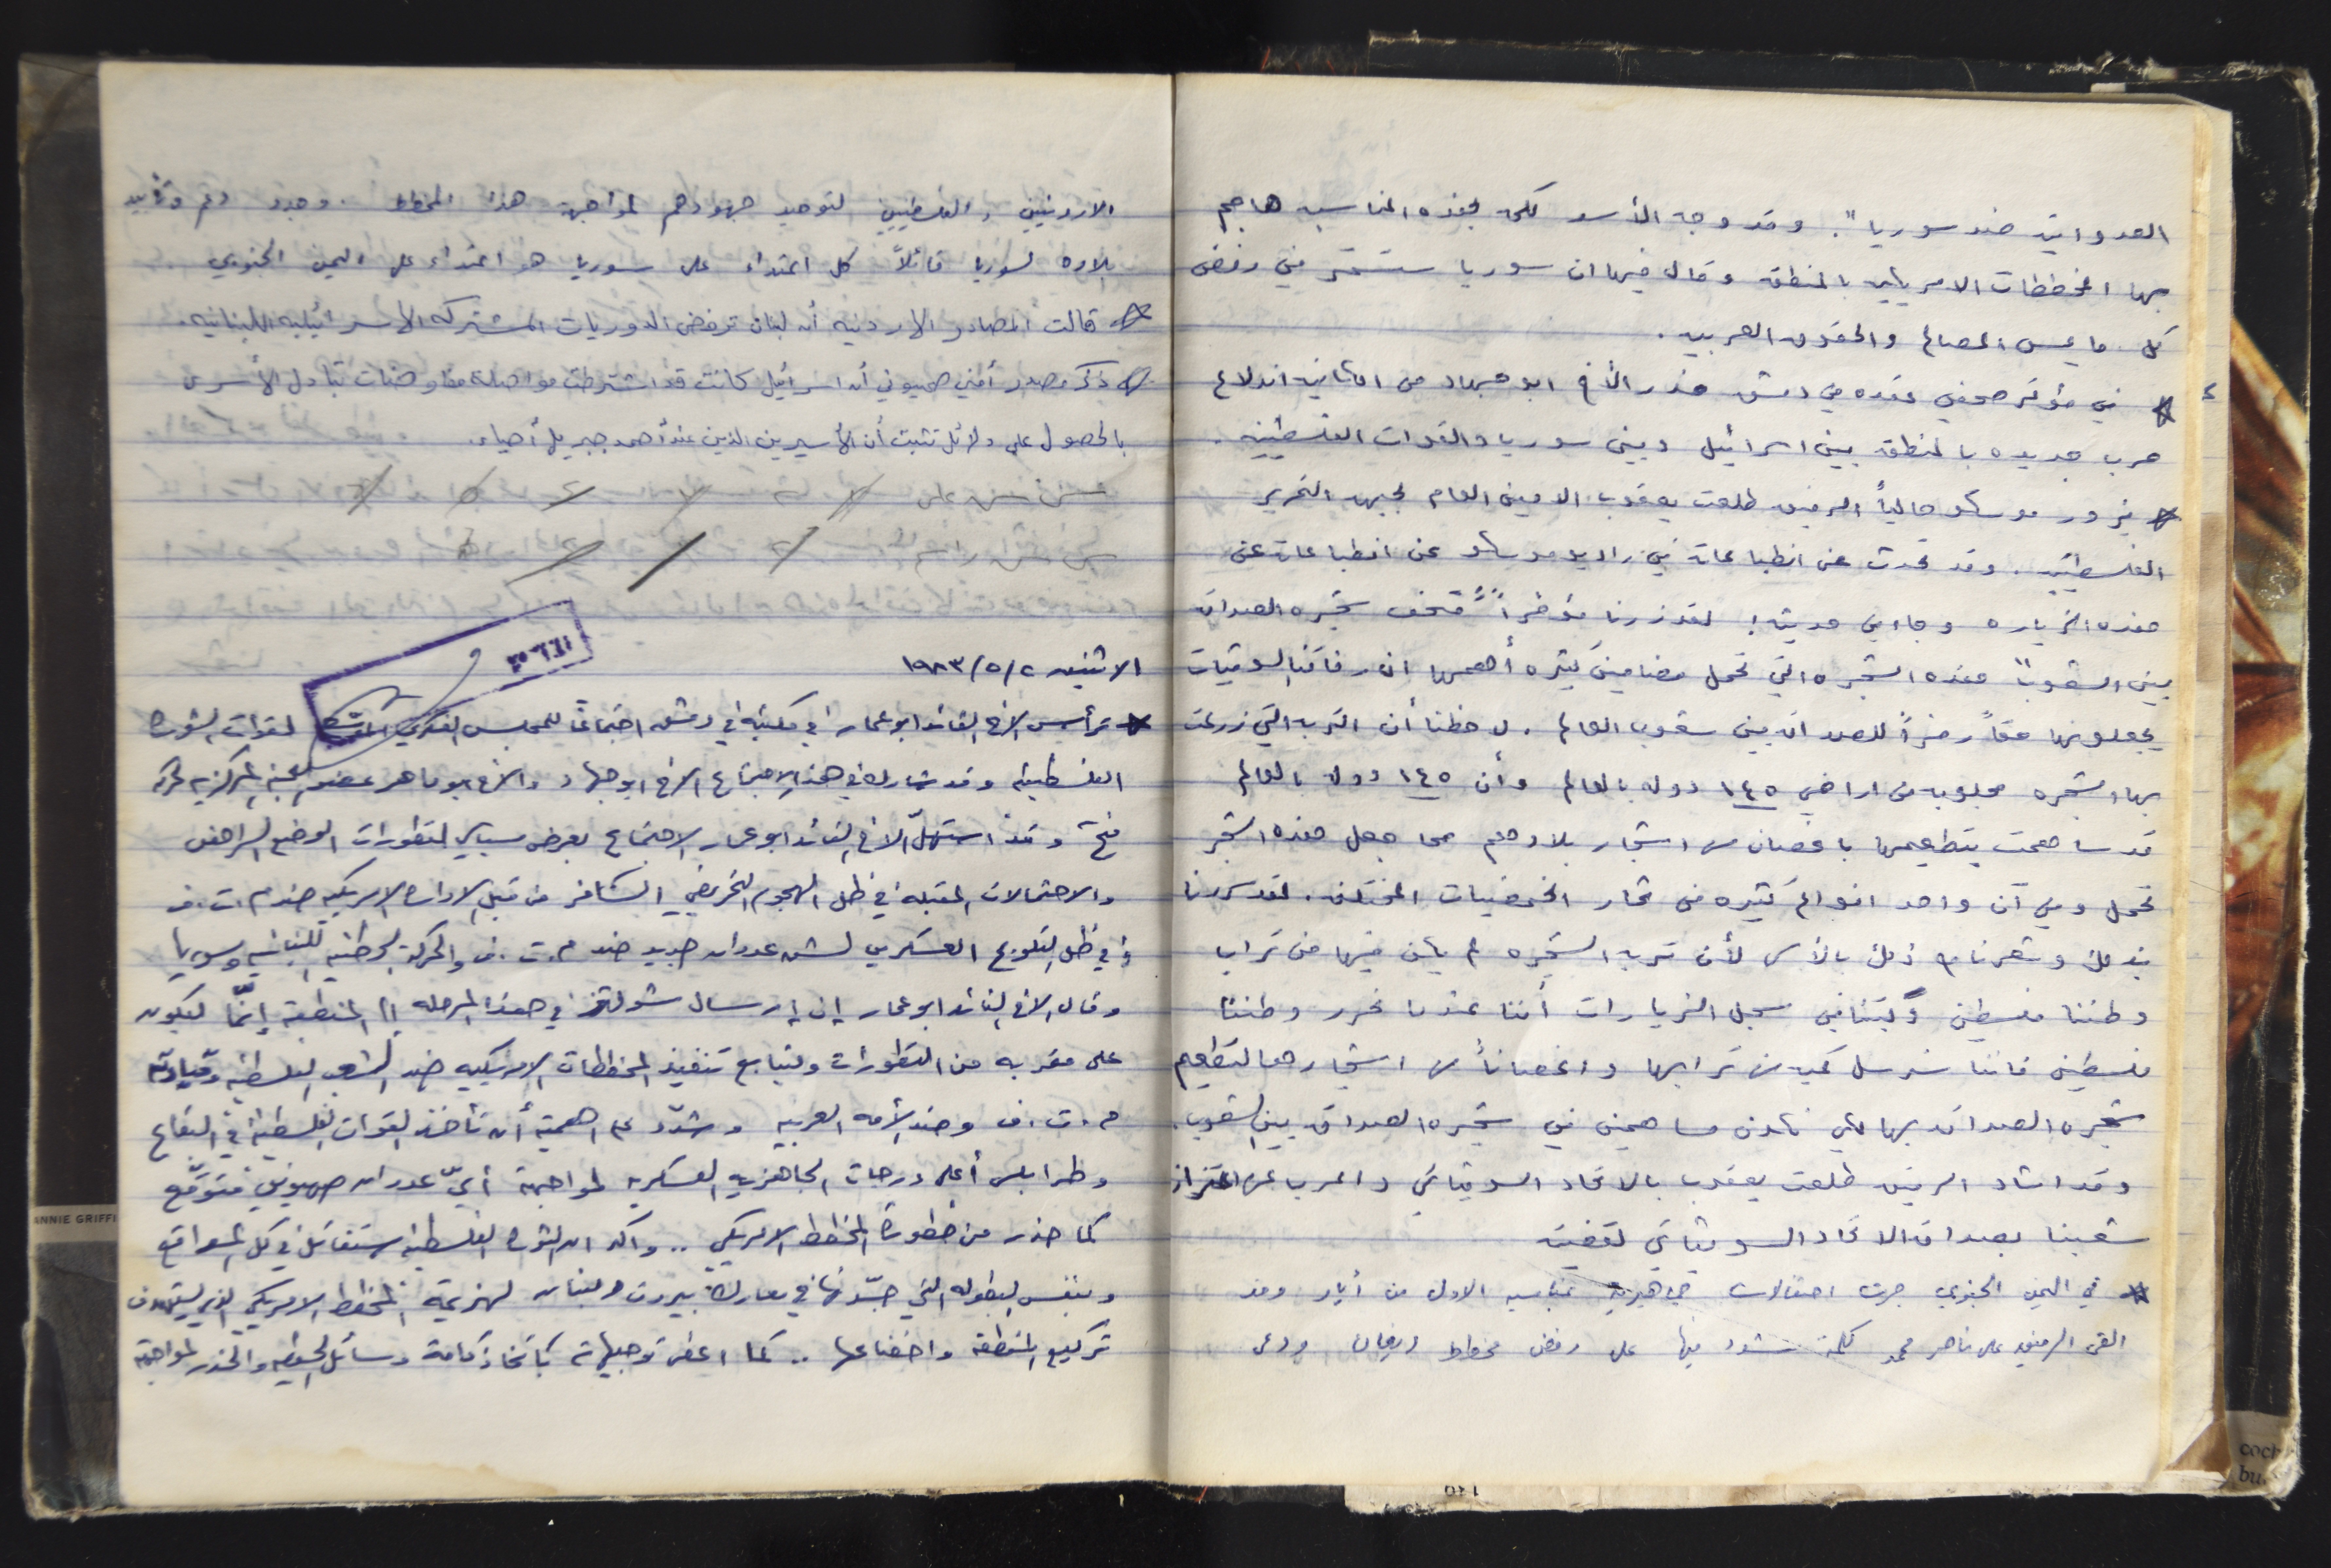 العدوانية ضد سوريا". وقد وجه الأسد كلمة بهذه المناسبة هاجم
بها المخططات الامريكية بالمنطقة وقال فيها ان سوريا ستستمر في رفض
كل ما يمس المصالح والحقوق العربية.
* في مؤتمر صحفي عقده في دمشق حذر الأخ ابو جهاد من امكانية اندلاع
حرب جديده بالمنطقة بين اسرائيل وبين سوريا والقوات الفلسطينية.
* يزور موسكو حالياً الرفيق طلعت يعقوب الامين العام لجبهة التحرير
الفلسطينية. وقد تحدث عن انطباعاته في راديو موسكو عن انطباعاته عن
هذه الزياره وجاء في حديثه: لقد زرنا مؤخراً "متحف شجره الصداقة
بين الشعوب" هذه الشجره التي تحمل مضامين كثيره أهمها ان رفاقنا السوفيات
يجعلونها حقاً رمزاً للصداقة بين شعوب العالم. لاحظنا أن التربه التي زرعت
بها الشجره مجلوبه من اراضي ١٤٥ دوله بالعالم وأن ١٤٥ دوله بالعالم
قد ساهمت بتطعيمها باغصان من اشجار بلادهم مما جعل هذه الشجر
تحمل وفي آن واحد انواع كثيره من ثمار الحمضيات المختلفه. لقد سررنا
بذلك وشعرنا مع ذلك بالأسى لأن تربه الشجره لم يكن فيها من تراب
وطننا فلسطين وكتبنا في سجل الزيارات أننا عندما نحرر وطننا
فلسطين فاننا سنرسل كميه من ترابها واغصاناً من اشجارها لتطعيم
شجره الصداقه بها لكي نكون مساهمين في شجره الصداقه بين الشعوب.
وقد اشاد الرفيق طلعت يعقوب بالاتحاد السوفياتي واعرب عن اعتزاز
شعبنا بصداقة الاتحاد السوفياتي لقضيته
* في اليمن الجنوبي جرت احتفالات جماهيرية بمناسبه الاول من أيار وقد
القى الرفيق علي ناصر محمد كلمة شدد فيها على رفض مخطط ريغان ودعى
الاردنيين والفلسطينيين لتوحيد جهودهم لمواجهة هذا المخطط. وجدد دعم وتأييد
بلاده لسوريا قائلاً كل اعتداء على سوريا هو اعتداء على اليمن الجنوبي.
* قالت المصادر الاردنيه أن لبنان ترفض الدوريات المشتركه الاسرائيليه اللبنانيه.
* ذكر مصدر أمني صهيوني أن اسرائيل كانت قد اشترطت مواصلة مفاوضات تبادل الأسرى
بالحصول على دلائل تثبت أن الأسيرين الذين عند أحمد جبريل أحياء.
الاثنين ٢/٥/١٩٨٣
* ترأس الاخ القائد ابو عمار في مكتبه في دمشق اجتماعاً للمجلس العسكري لقوات الثورة
الفلسطينيه وقد شارك في هذا الاجتماع الاخ ابو جهاد والاخ ابو ماهر عضو اللجنه المركزيه لحركه
فتح وقد استهلّ الاخ القائد ابو عمار الاجتماع بعرض سياسي لتطورات الوضع الراهن
والاحتمالات المقبله في ظل الهجوم التحريضي السافر من قبل الاداره الامريكيه ضد م.ت.ف
وفي ظل التلويح العسكري لشن عدوان جديد ضد م.ت.ف والحركة الوطنيه اللبنانيه وسوريا
وقال الاخ القائد ابو عمار إن إرسال شولتز في هذه المرحله الى المنطقه إنّما ليكون
على مقربه من التطورات وليتابع تنفيذ المخططات الامريكيه ضد الشعب الفلسطيني وقيادته
م.ت.ف وضد الأمه العربيه وشدّد على اهمية أن تأخذ القوات الفلسطينيه في البقاع
وطرابلس أعلى درجات الجاهزيه العسكريه لمواجهة أيّ عدوان صهيوني متوقّع
كما حذر من خطورة المخطط الامريكي.. واكد ان الثوره الفلسطينيه ستقاتل في كل المواقع
وبنفس البطوله التي جسّدتها في معارك بيروت ولبنان لهزيمة المخطط الامريكي الذي يستهدف
تركيع المنطقه واخضاعها.. كما اعطى توجيهاته باتخاذ كافة وسائل الحيطه والحذر لمواجهة
ANNIE GRIFFI